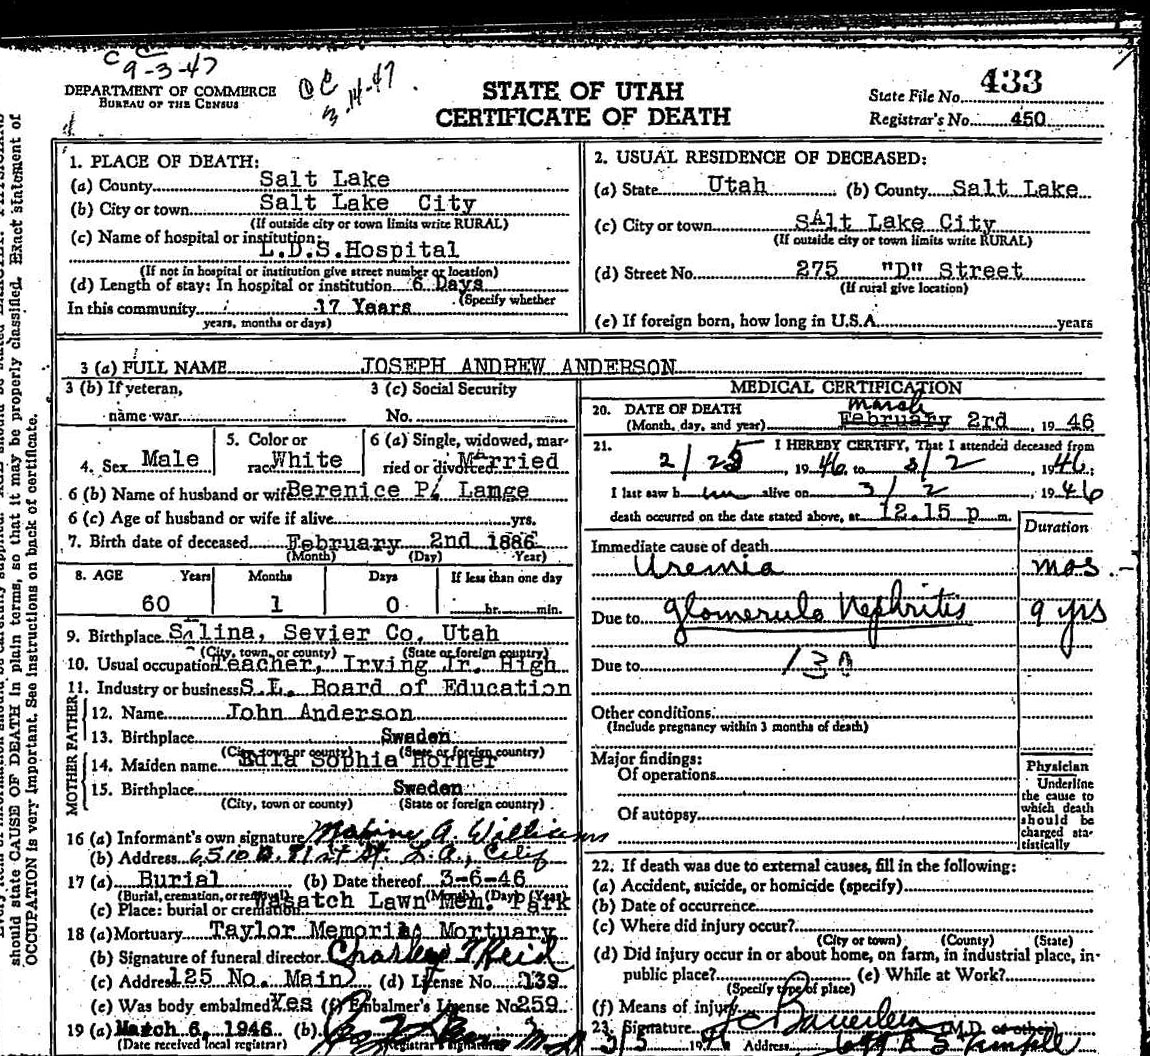 C C
9-3-47
OC
3-14-47
DEPARTMENT OF COMMERCE
BUREAU OF THE CENSUS
STATE OF UTAH
CERTIFICATE OF DEATH
State File No. 433
Registrar's No. 450
1. PLACE OF DEATH:
(a) County Salt Lake
(b) City or town Salt Lake City
(If outside city or town limits write RURAL)
(c) Name of hospital or institution: L.D.S.Hospital
(If not in hospital or institution give street number or location)
(d) Length of stay: In hospital or institution 6 Days
(Specify whether
In this community 17 Years
years, months or days)
2. USUAL RESIDENCE OF DECEASED:
(a) State Utah (b) County Salt Lake
(c) City or town SAlt Lake City
(If outside city or town limits write RURAL)
(d) Street No. 275 "D" Street
(If rural give location)
(e) If foreign born, how long in U.S.A. years
3 (a) FULL NAME JOSEPH ANDREW ANDERSON
3 (b) If veteran, 3 (c) Social Security
name war No.
4. Sex Male 5. Color or race White 6 (a) Single, widowed, married or divorced Married
6 (b) Name of husband or wife Berenice P. Lange
6 (c) Age of husband or wife if alive yrs.
7. Birth date of deceased February 2nd 1886
(Month) (Day) Year)
8. AGE Years Months Days If less than one day
60 1 0 hr. min.
9. Birthplace Salina, Sevier Co. Utah
(City, town, or county) (State or foreign country)
10. Usual occupation Teacher, Irving Jr. High
11. Industry or business S.L. Board of Education
FATHER
12. Name John Anderson
13. Birthplace Sweden
(City, town or county) (State or foreign country)
MOTHER
14. Maiden name Edla Sophia Horner
15. Birthplace Sweden
(City, town or county) (State or foreign country)
16 (a) Informant's own signature Maxine A. Williams
(b) Address 6510 81st St. L.A., Calif
17 (a) Burial (b) Date thereof 3-6-46
(Burial, cremation, or removal) (Month) (Day) (Year)
(c) Place: burial or cremation Wasatch Lawn Mem. Park
18 (a) Mortuary Taylor Memorial Mortuary
(b) Signature of funeral director Charles Reid
(c) Address 125 No. Main (d) License No. 139
(e) Was body embalmed Yes (f) Embalmer's License No. 259
19 (a) March 6, 1946 (b) M.D.
(Date received local registrar) Registrar's signature
MEDICAL CERTIFICATION
20. DATE OF DEATH March
(Month, day, and year) February 2rd, 1946
21. I HEREBY CERTIFY, That I attended deceased from
2/25, 1946, to 3/2 1946;
I last saw him alive on 3/2, 1946
death occurred on the date stated above, at 12.15 p m.
Duration
Immediate cause of death
Uremia mos
Due to glomerulo Nephritis 9 yrs
Due to 130
Other conditions
(Include pregnancy within 3 months of death)
Major findings:
Of operations
Of autopsy
Physician
Underline
the cause to
which death
should be
charged sta-
tistically
22. If death was due to external causes, fill in the following:
(a) Accident, suicide, or homicide (specify)
(b) Date of occurrence
(c) Where did injury occur?
(City or town) (County) (State)
(d) Did injury occur in or about home, on farm, in industrial place, in
public place? (e) While at Work?
(Specify type of place)
(f) Means of injury
23. Signature (M.D. or other)
3/5 1946 Address
should state CAUSE OF DEATH in plain terms, so that it may be properly classified. Exact statement of
OCCUPATION is very important. See instructions on back of certificate.